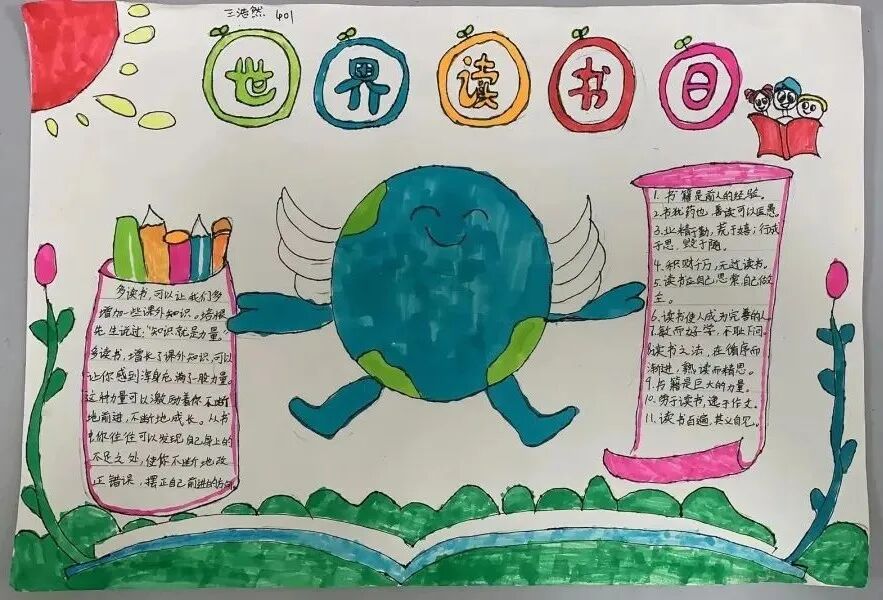 王浩然 401
世界读书日
多读书,可以让我们多
增加一些课外知识。培根
先生说过:“知识就是力量。”
多读书,增长了课外知识,可以
让你感到浑身充满了一股力量。
这种力量可以激励着你不断
地前进,不断地成长。从书
中你往往可以发现自己身上的
不足之处,使你不断地改
正错误,摆正自己前进的方向。
1. 书籍是前人的经验。
2. 书犹药也,善读可以医愚。
3. 业精于勤,荒于嬉;行成
于思,毁于随。
4. 积财千万,无过读书。
5. 读书在自己思索,自己做
主。
6. 读书使人成为完善的人
7. 敏而好学,不耻下问。
8. 读书之法,在循序而
渐进,熟读而精思。
9. 书籍是巨大的力量。
10. 劳于读书,逸于作文。
11. 读书百遍,其义自见。